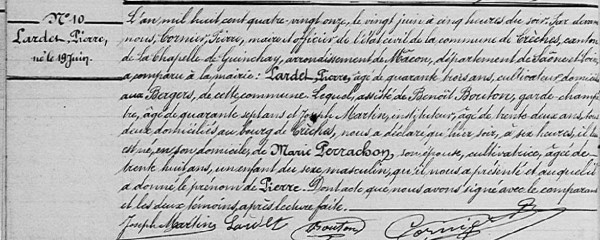 N° 10
Lardet, Pierre,
né le 19 Juin.
L'an mil huit cent quatre-vingt onze, le vingt juin à cinq heures du soir. Par devant
nous, Cornier, Pierre, maire et officier de l'état civil de la commune de Crêches, canton
de la Chapelle de Guinchay, arrondissement de Mâcon, département de Saône et Loire,
a comparu à la mairie: Lardet, Pierre, âgé de quarante trois ans, cultivateur, domicilié
aux Bergers, de cette commune. Lequel, assisté de Benoît Bouton, garde-champê-
tre, âgé de quarante sept ans et Joseph Martin, instituteur, âgé de trente deux ans, tous
deux domiciliés au bourg de Crêches, nous a déclaré qu'hier soir, à six heures, il
est né, en son domicile, de Marie Perrachon, son épouse, cultivatrice, âgée de
trente huit ans, un enfant du sexe masculin, qu'il nous a présenté et auquel il
a donné le prénom de Pierre. Dont acte que nous avons signé avec le comparant
et les deux témoins, après lecture faite.
Joseph Martin Lardet Bouton Cornier